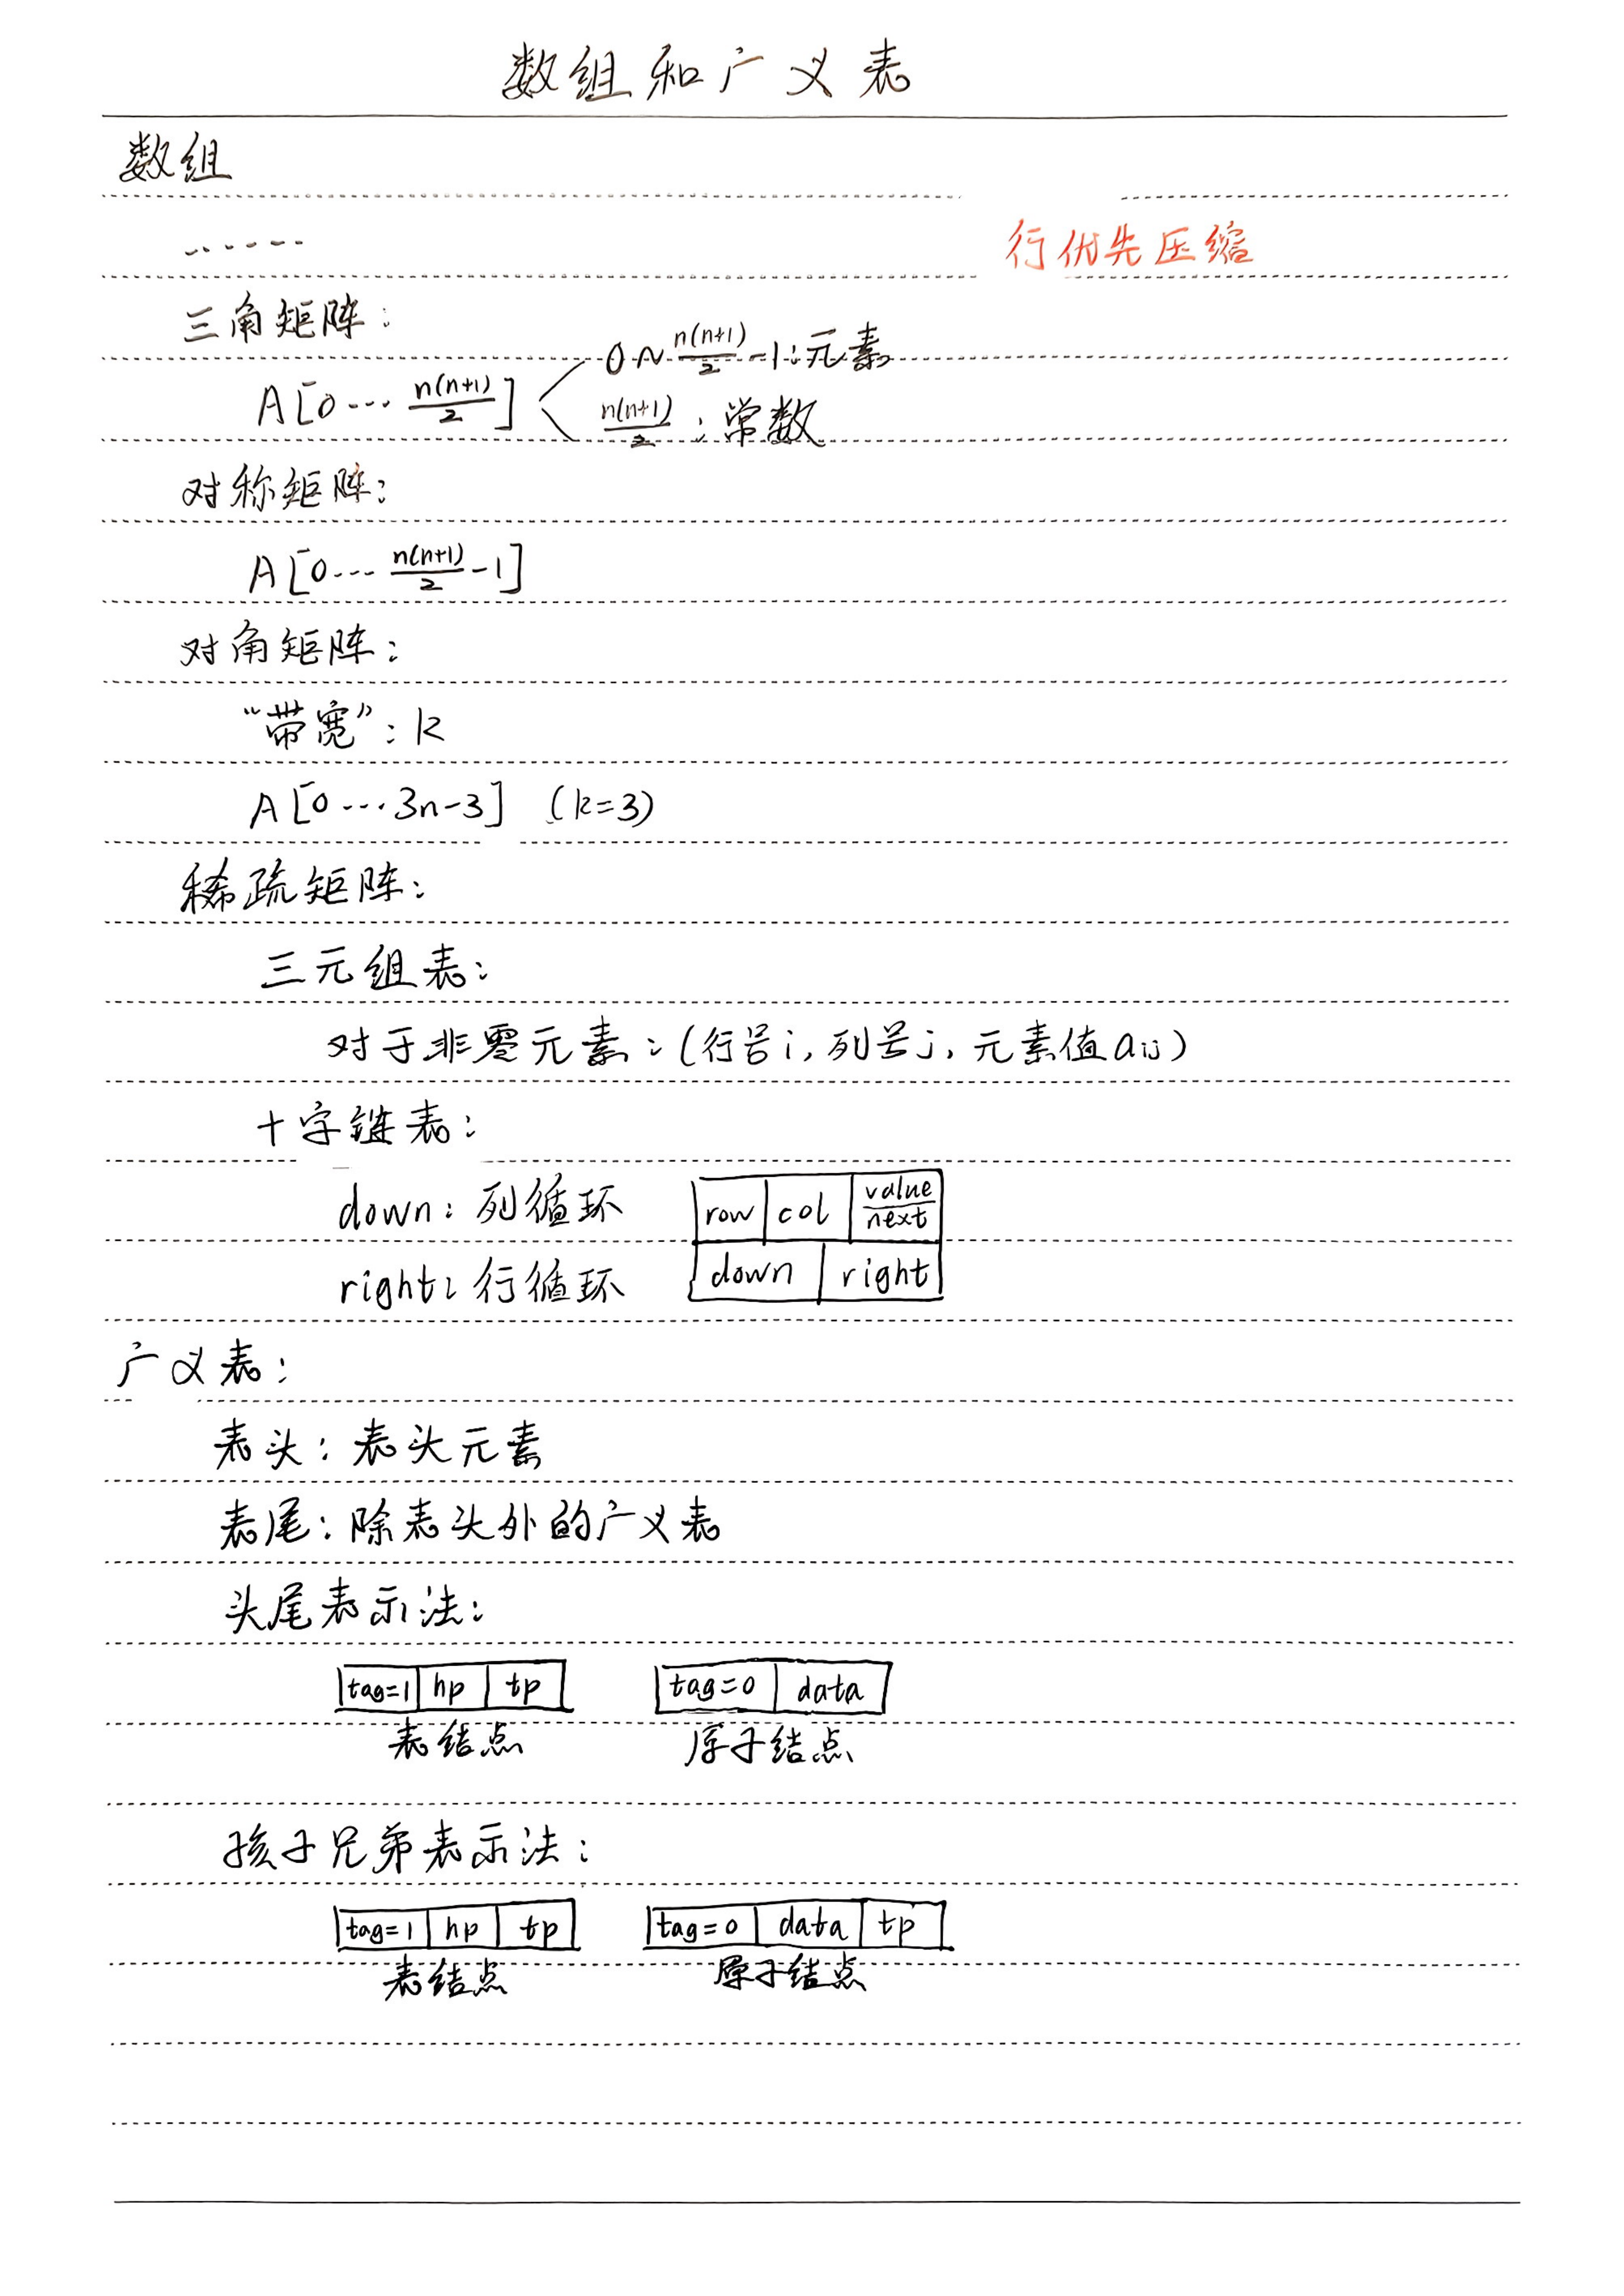 数组和广义表
数组
······
行优先压缩
三角矩阵：
A[0 ··· n(n+1)/2]
0 ~ n(n+1)/2 -1：元素
n(n+1)/2 ：常数
对称矩阵：
A[0 ··· n(n+1)/2 -1]
对角矩阵：
“带宽”：k
A[0 ··· 3n-3] (k=3)
稀疏矩阵：
三元组表：
对于非零元素：(行号i, 列号j, 元素值aij)
十字链表：
down：列循环
right：行循环
row col value/next
down right
广义表：
表头：表头元素
表尾：除表头外的广义表
头尾表示法：
tag=1 hp tp tag=0 data
表结点 原子结点
孩子兄弟表示法：
tag=1 hp tp tag=0 data tp
表结点 原子结点